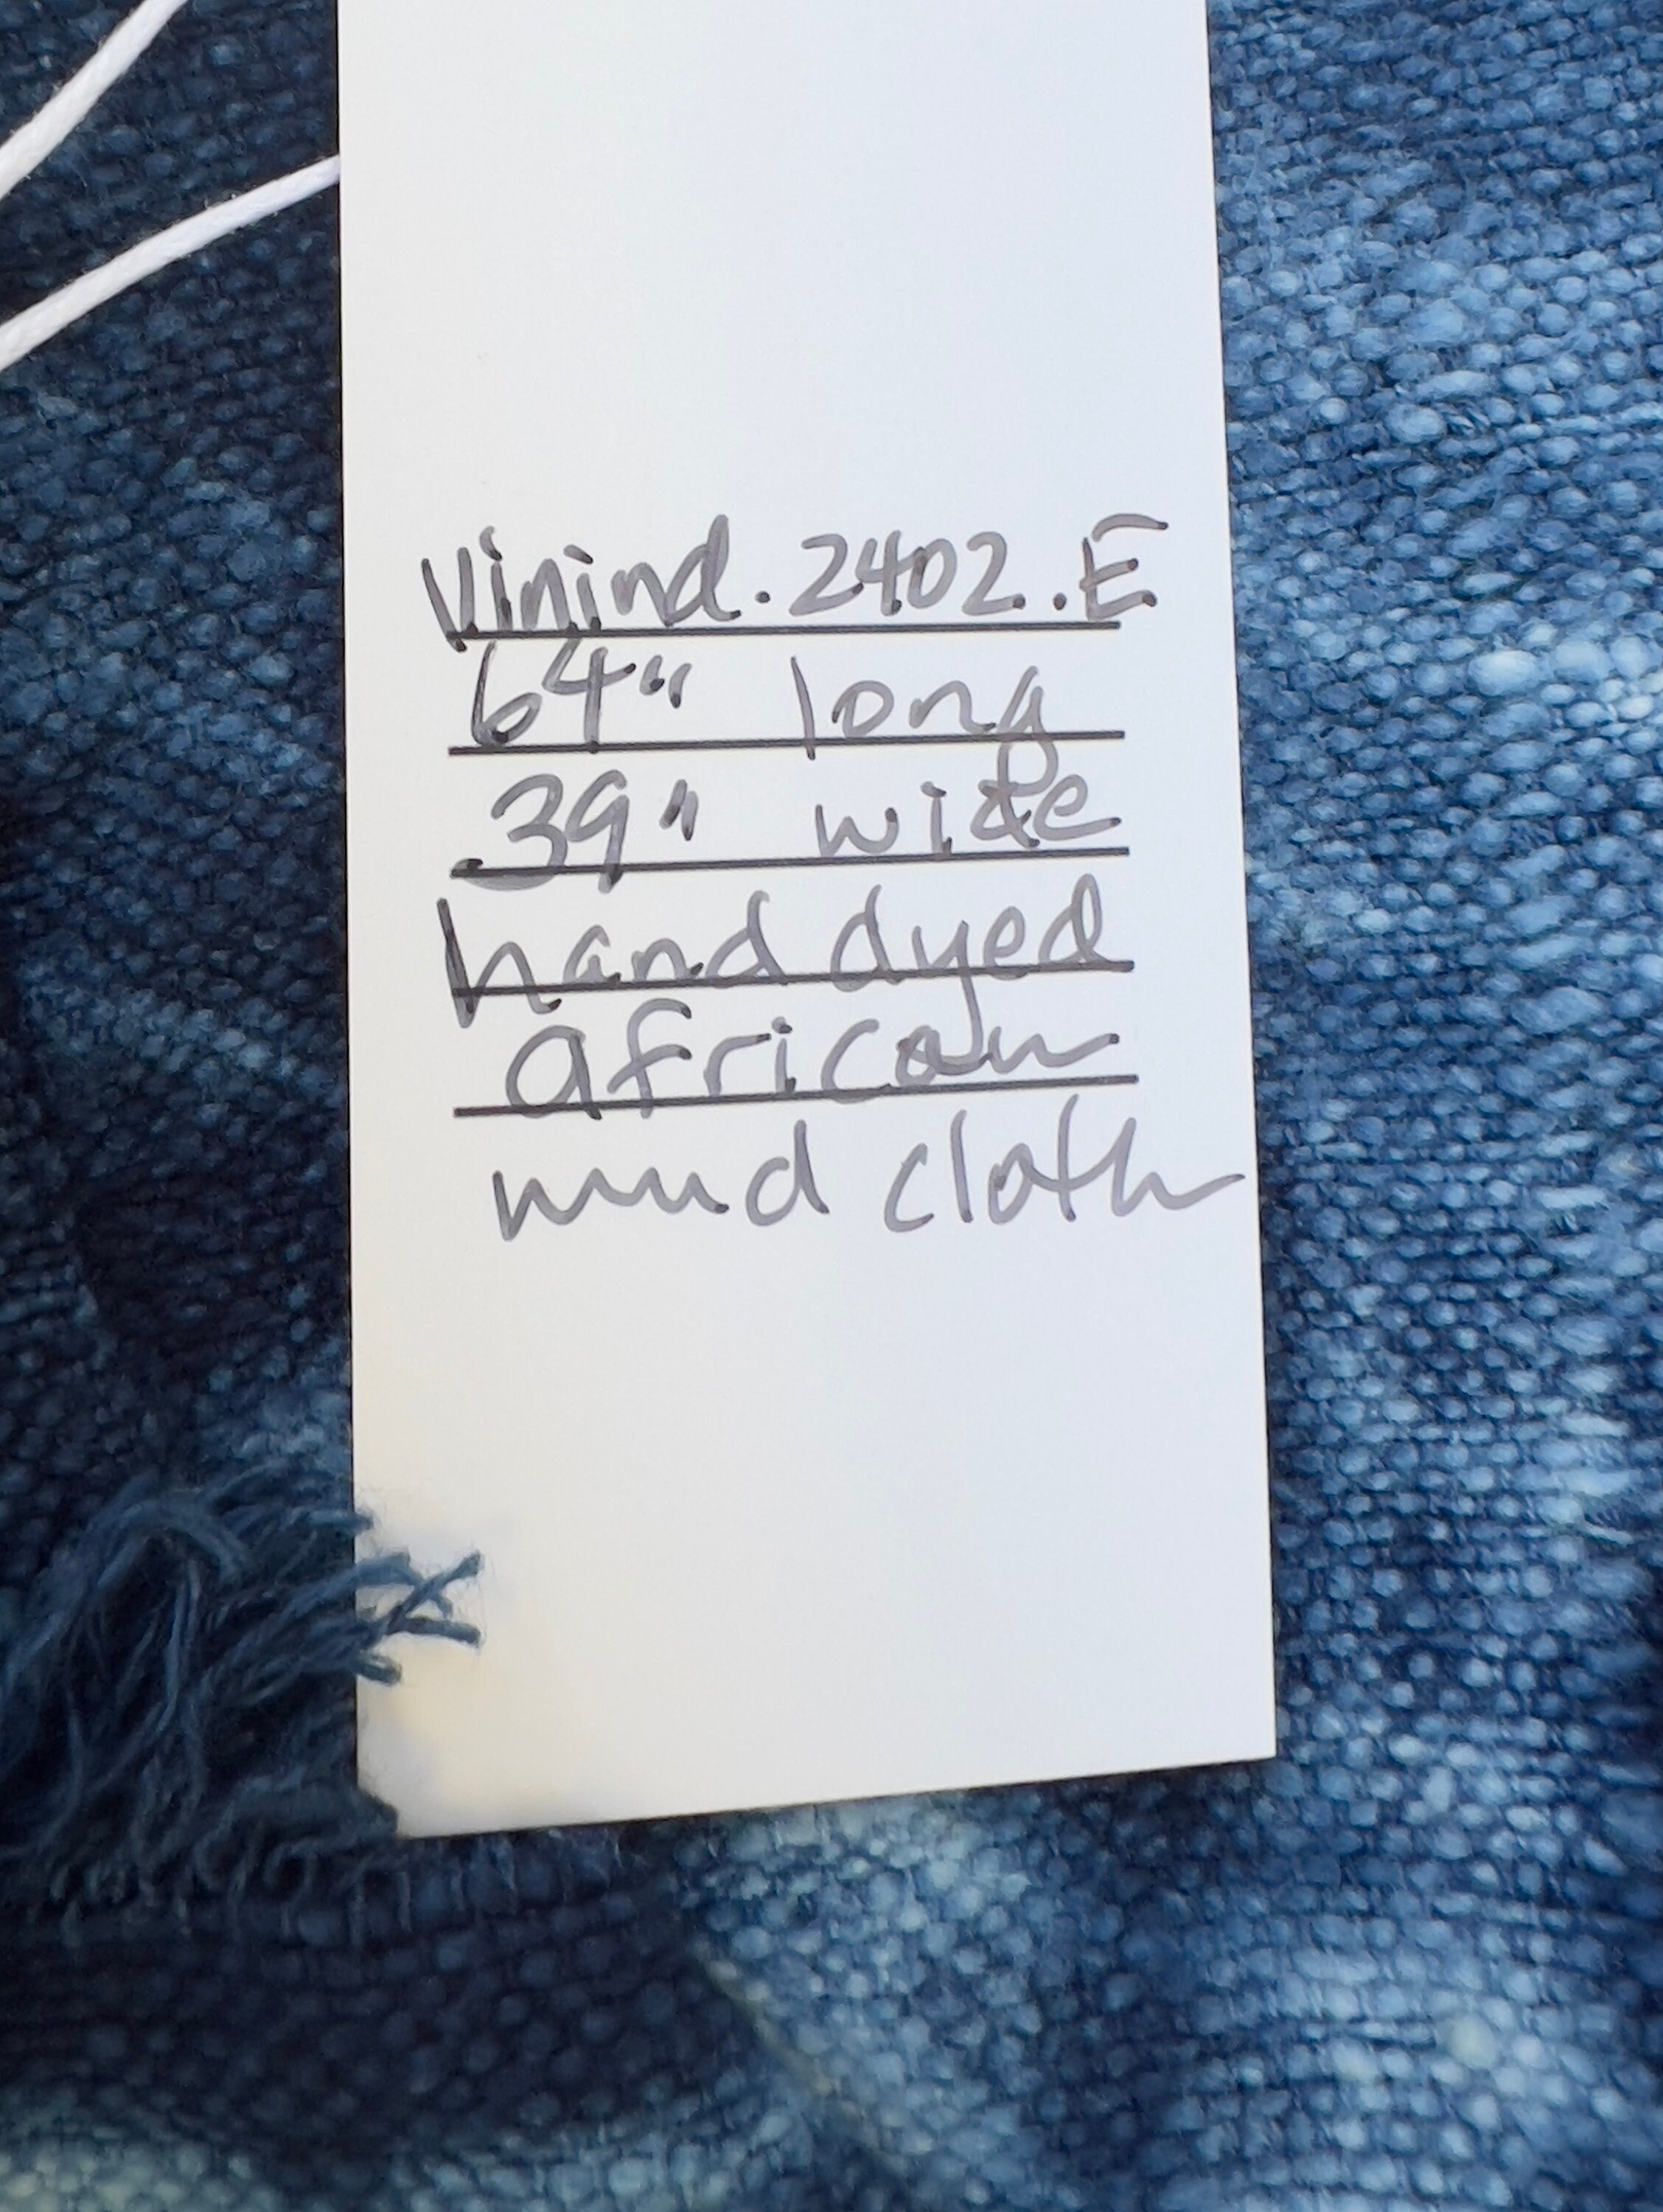 Vinind.2402.E
64" long
39" wide
hand dyed
african
mud cloth